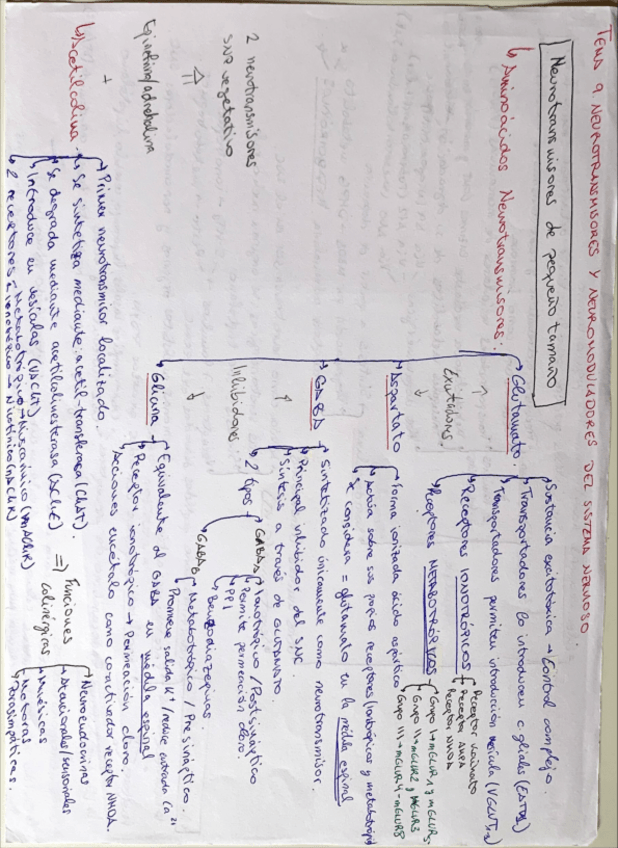 TEMA 9 NEUROTRANSMISORES Y NEUROMODULADORES DEL SISTEMA NERVIOSO.
Neurotransmisores de pequeño tamaño
↳ Aminoácidos Neurotransmisores:
Glutamato.
Sustancia excitotóxica → Control complejo.
Transportadores lo introducen e gliales (EATDs)
Transportadores permiten introducción vesícula (VGLUT1-3)
Receptores IONOTRÓPICOS
Receptor Kainato
Receptor AMPA
Receptor NMDA
Receptores METABOTRÓPICOS
Grupo I → mGLUR1 y mGLUR5
Grupo II → mGLUR2 y mGLUR3
Grupo III → mGLUR4 - mGLUR8
Excitadores.
Aspartato
Forma ionizada ácido aspártico
Actúa sobre sus propios receptores (ionotrópicos y metabotrópicos)
Se considera = glutamato en la médula espinal
GABA
Sintetizado únicamente como neurotransmisor.
Principal inhibidor del SNC.
Síntesis a través de GLUTAMATO
2 tipos
GABAA
Ionotrópico / Postsináptico
Permite permeación cloro.
PPI
Benzodiazepinas.
GABAB
Metabotrópico / Presináptico.
Promueve salida K+ / reduce entrada Ca2+
Inhibidores
Glicina
Equivalente al GABA en médula espinal
Receptor ionotrópico → Permeación cloro.
Acciones encéfalo como coactivador receptor NMDA.
2 neurotransmisores
SNP vegetativo
Epinefrina/adrenalina
+
↳ Acetilcolina.
Primer neurotransmisor localizado.
Se sintetiza mediante: acetil-transferasa (ChAT).
Se degrada mediante acetilcolinesterasa (AChE)
Introduce en vesículas (VAChT)
2 receptores
Metabotrópico → Muscarínico (mAChR)
Ionotrópico → Nicotínico (nAChR)
⇒ Funciones
colinérgicas
Neuroendocrinas
Atencionales/sensoriales
Mnésicas
Motoras
Parasimpáticas.